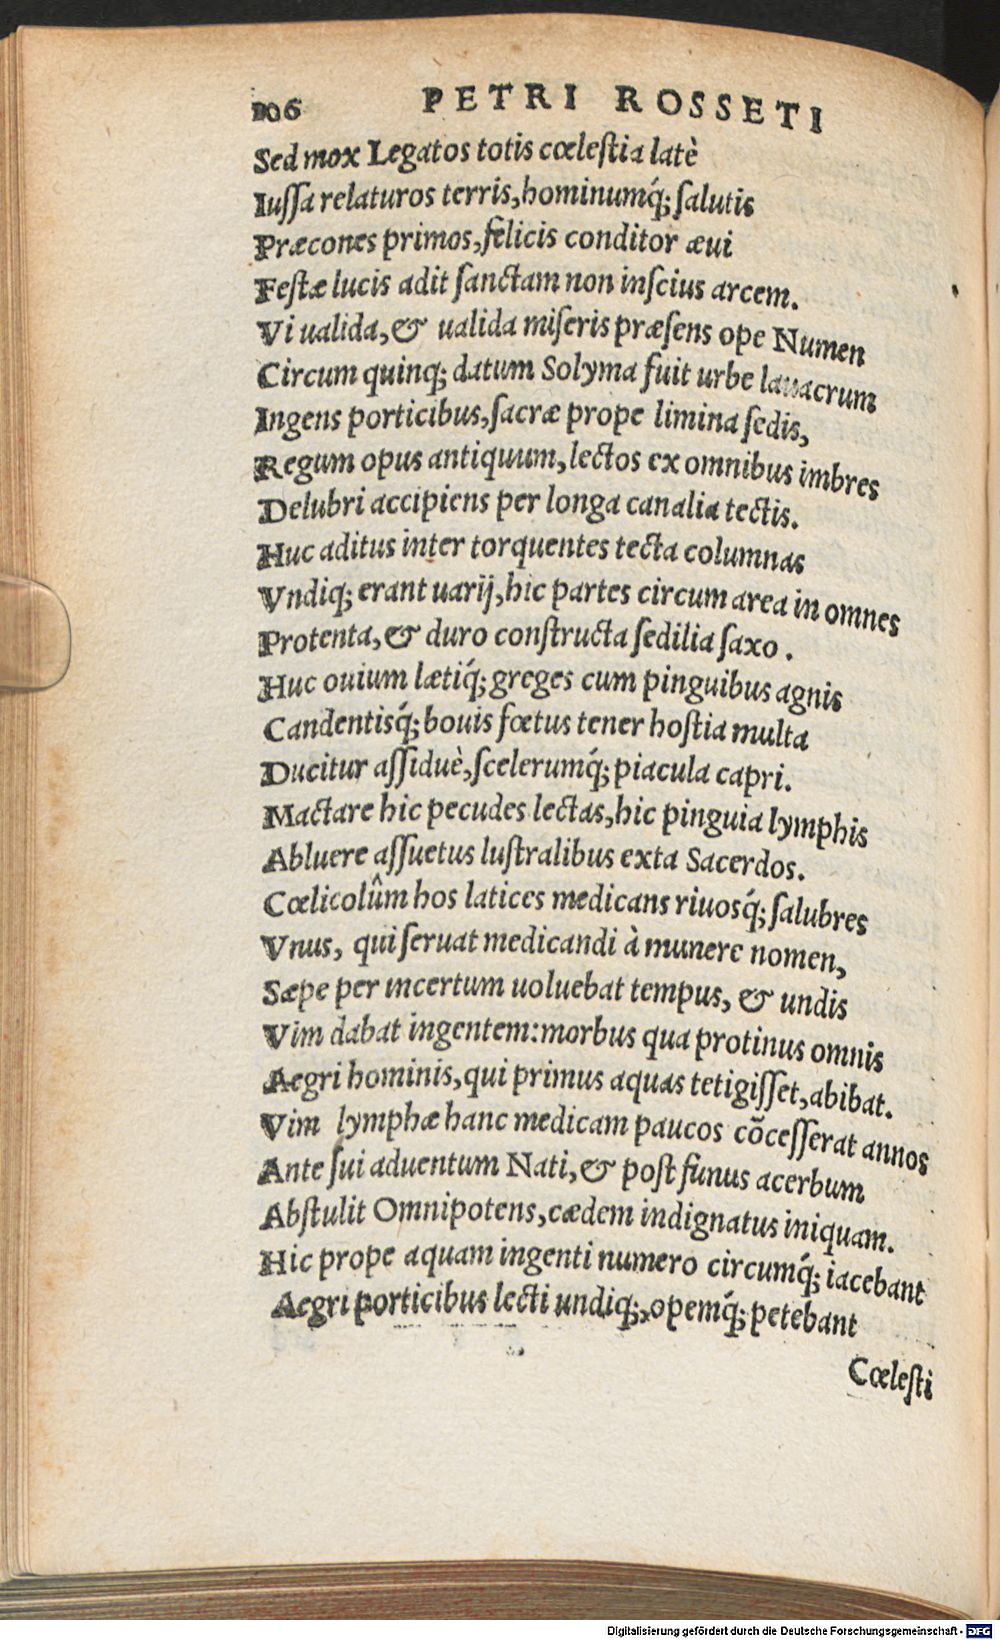 106 PETRI ROSSETI
Sed mox Legatos totis cœlestia latè
Iussa relaturos terris, hominumq́; salutis
Præcones primos, felicis conditor æui
Festæ lucis adit sanctam non inscius arcem.
Vi ualida, & ualida miseris præsens ope Numen
Circum quinq; datum Solyma fuit urbe lauacrum
Ingens porticibus, sacræ prope limina sedis,
Regum opus antiquum, lectos ex omnibus imbres
Delubri accipiens per longa canalia tectis.
Huc aditus inter torquentes tecta columnas
Vndiq; erant uarij, hic partes circum area in omnes
Protenta, & duro constructa sedilia saxo.
Huc ouium lætiq́; greges cum pinguibus agnis
Candentisq́; bouis fœtus tener hostia multa
Ducitur assiduè, scelerumq́; piacula capri.
Mactare hic pecudes lectas, hic pinguia lymphis
Abluere assuetus lustralibus exta Sacerdos.
Cœlicolûm hos latices medicans riuosq́; salubres
Vnus, qui seruat medicandi à munere nomen,
Sæpe per incertum uoluebat tempus, & undis
Vim dabat ingentem: morbus qua protinus omnis
Aegri hominis, qui primus aquas tetigisset, abibat.
Vim lymphæ hanc medicam paucos cõcesserat annos
Ante sui aduentum Nati, & post funus acerbum
Abstulit Omnipotens, cædem indignatus iniquam.
Hic prope aquam ingenti numero circumq́; iacebant
Aegri porticibus lecti undiq;, opemq́; petebant
Cœlesti
Digitalisierung gefördert durch die Deutsche Forschungsgemeinschaft - DFG